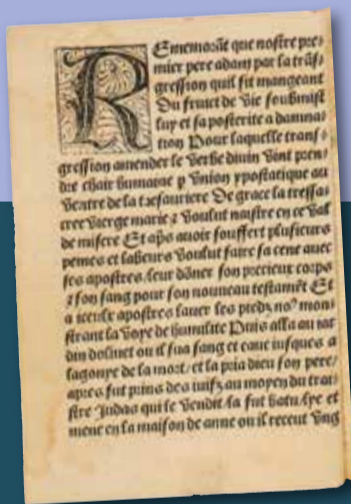 REmemorāt que nostre pre⸗
mier pere adam par la trās⸗
gression quil fit mangeant
Du fruict de vie soubmist
luy et sa posterite a damna⸗
tion Pour laquelle trans⸗
gression amender le verbe divin vint pren⸗
dre chair humaine p vnion ypostatique au
ventre de la tresauriere De grace la tressa⸗
cree vierge marie ⁊ voulut naistre en ce val
de misere Et aps auoir souffert plusieurs
peines et labeurs voulut faire sa cene auec
ses apostres / leur dōner son precieux corps
⁊ son sang pour son nouueau testamēt Et
a iceulx apostres lauer les piedz no⁹ mon⸗
strant la voye de humilite Puis alla au iar
din doliuet ou il sua sang et eaue iusques a
lagonye de la mort / et la pria dieu son pere /
apres fut prins des iuifz au moyen du trai⸗
stre Judas qui le vendit / la fut batu / lye et
mene en la maison de anne ou il receut vng